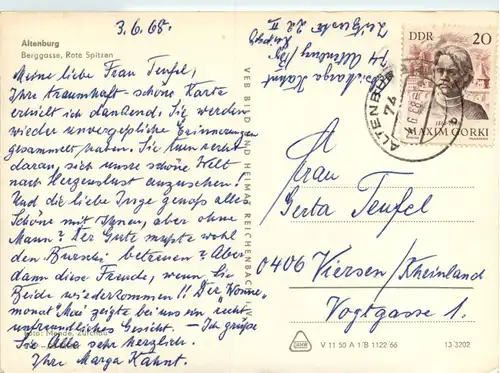 3.6.68.
Altenburg
Berggasse, Rote Spitzen
Meine liebe Frau Teufel,
Ihre traumhaft schöne Karte
erhielt ich dankend. Sie werden
wieder unvergeßliche Erinnerungen
gesammelt haben. Sie tun recht
daran, sich unsre schöne Welt
nach Herzenslust anzusehen!
Und die liebe Inge genoß alles
Schöne mit Ihnen, aber ohne
Mann? Der Gute mußte wohl
den Burschi betreuen? Aber
dann diese Freude, wenn Sie
Beide wiederkommen!! Der "Wonne-
monat" Mai zeigte bei uns ein recht
unfreundliches Gesicht. – Ich grüße
Sie Alle sehr herzlich.
Ihre Marga Kahnt.
Foto: Mende, Zürchau
VEB BILD UND HEIMAT REICHENBACH I. V.
Marga Kahnt
74 Altenburg
DDR 20
MAXIM GORKI
ALTENBURG
74
b
Frau
Gerta Teufel
0406 Viersen/Rheinland
Vogtgasse 1.
V 11 50 A 1/B 1122 66
13 3202